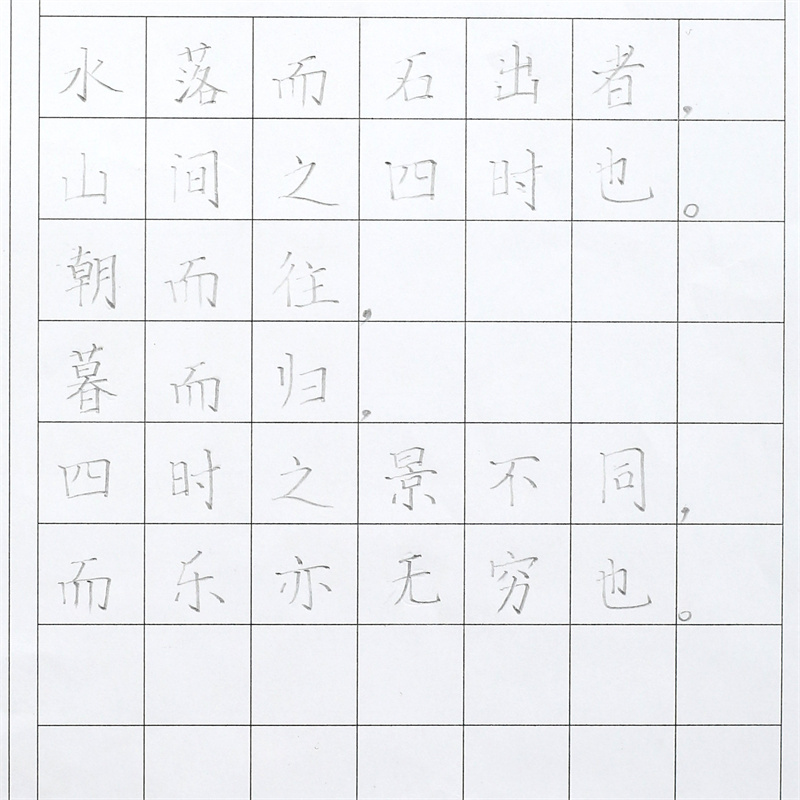 水落而石出者，
山间之四时也。
朝而往，
暮而归，
四时之景不同，
而乐亦无穷也。